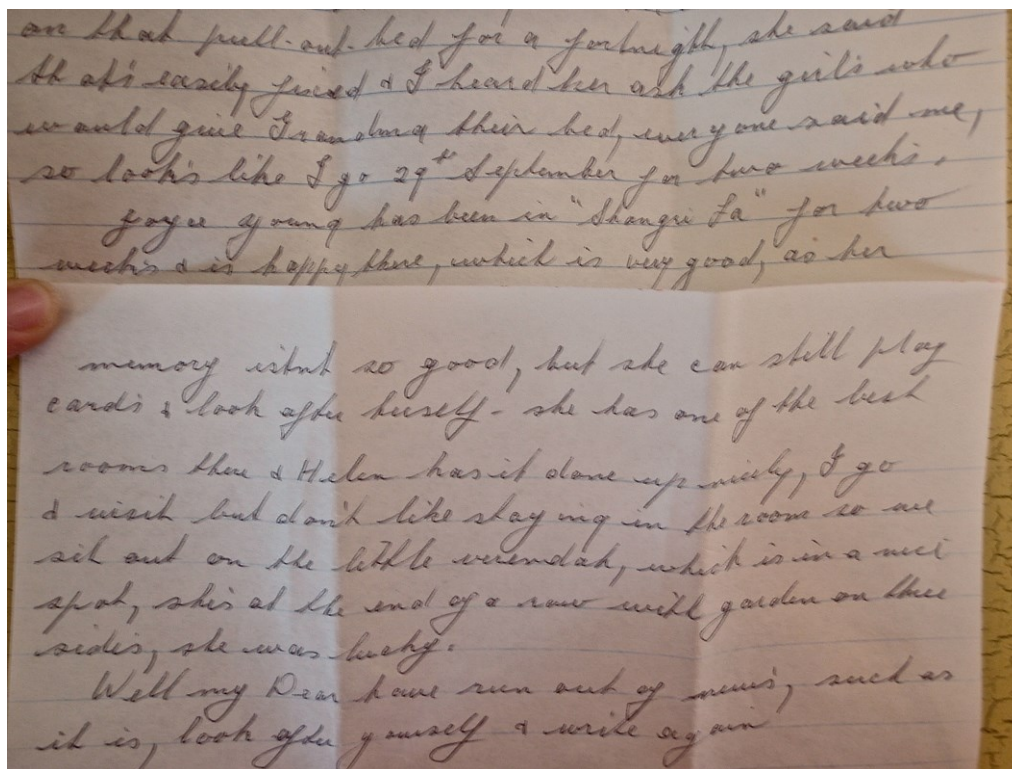 on that pull-out-bed for a fortnight, she said
that's easily fixed & I heard her ask the girls who
would give Grandma their bed, everyone said me,
so looks like I go 29th September for two weeks.
Joyce Young has been in "Shangri La" for two
weeks & is happy there, which is very good, as her
memory isnt so good, but she can still play
cards & look after herself - she has one of the best
rooms there & Helen has it done up nicely, I go
& visit but don't like staying in the room so we
sit out on the little verendah, which is in a nice
spot, shes at the end of a row with garden on three
sides, she was lucky.
Well my Dear have run out of news, such as
it is, look after yourself & write again